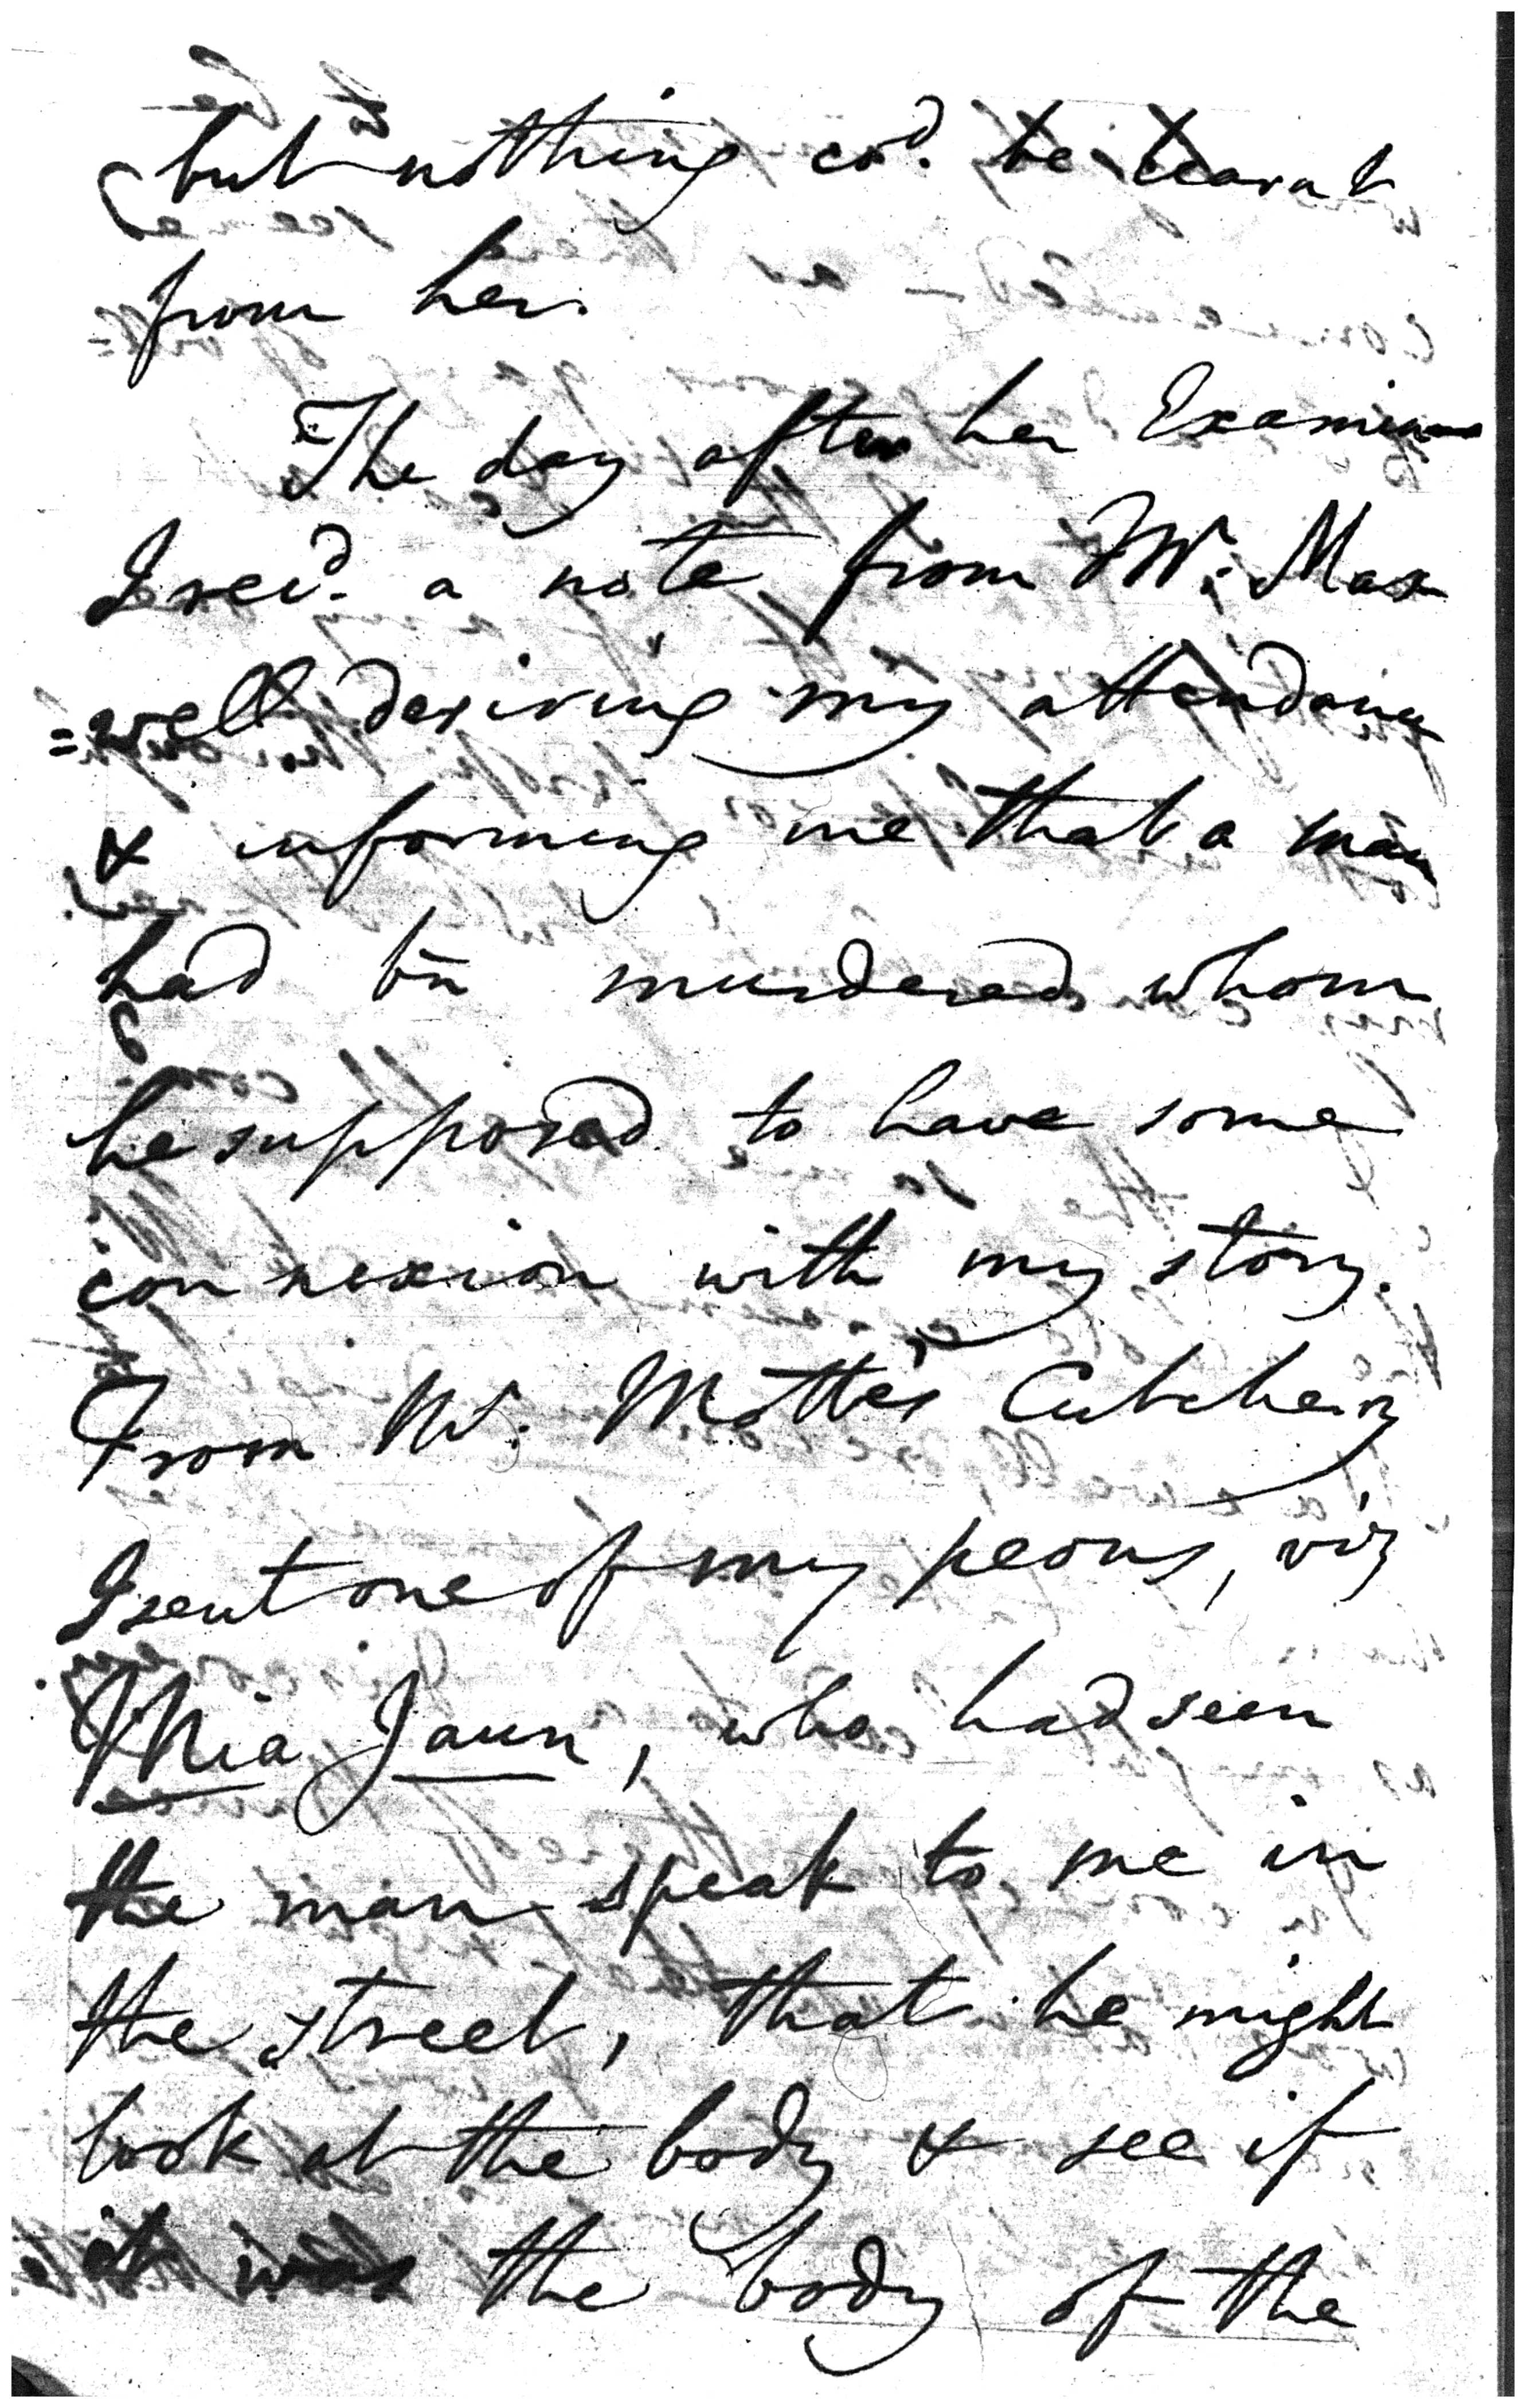 but nothing cod. be learnt
from her.
The day after her Examin
I recd. a note from Mr. Max
=well desiring my attendance
& informing me that a man
had bn murdered whom
he supposed to have some
connexion with my story.
From Mr. Motte's Cutchery
I sent one of my peons, viz
Mia Jaun, who had seen
the man speak to me in
the street, that he might
look at the body & see if
it was the body of the